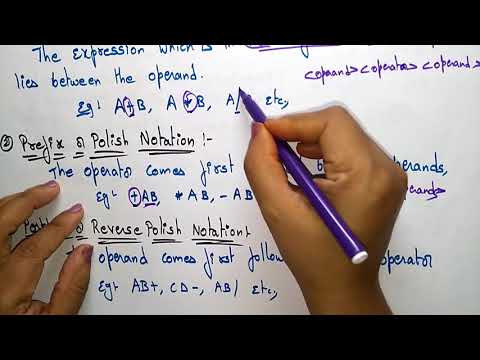 The Expression which is
lies between the operand. <operand> <operator> <operand>
Eg: A+B, A*B, A/ Etc,
② Prefix or Polish Notation :-
The operator comes first operands,
Eg: +AB, *AB, -AB
or Reverse Polish Notation:
operand comes first follo operator
Eg: AB+, CD-, AB/ Etc,